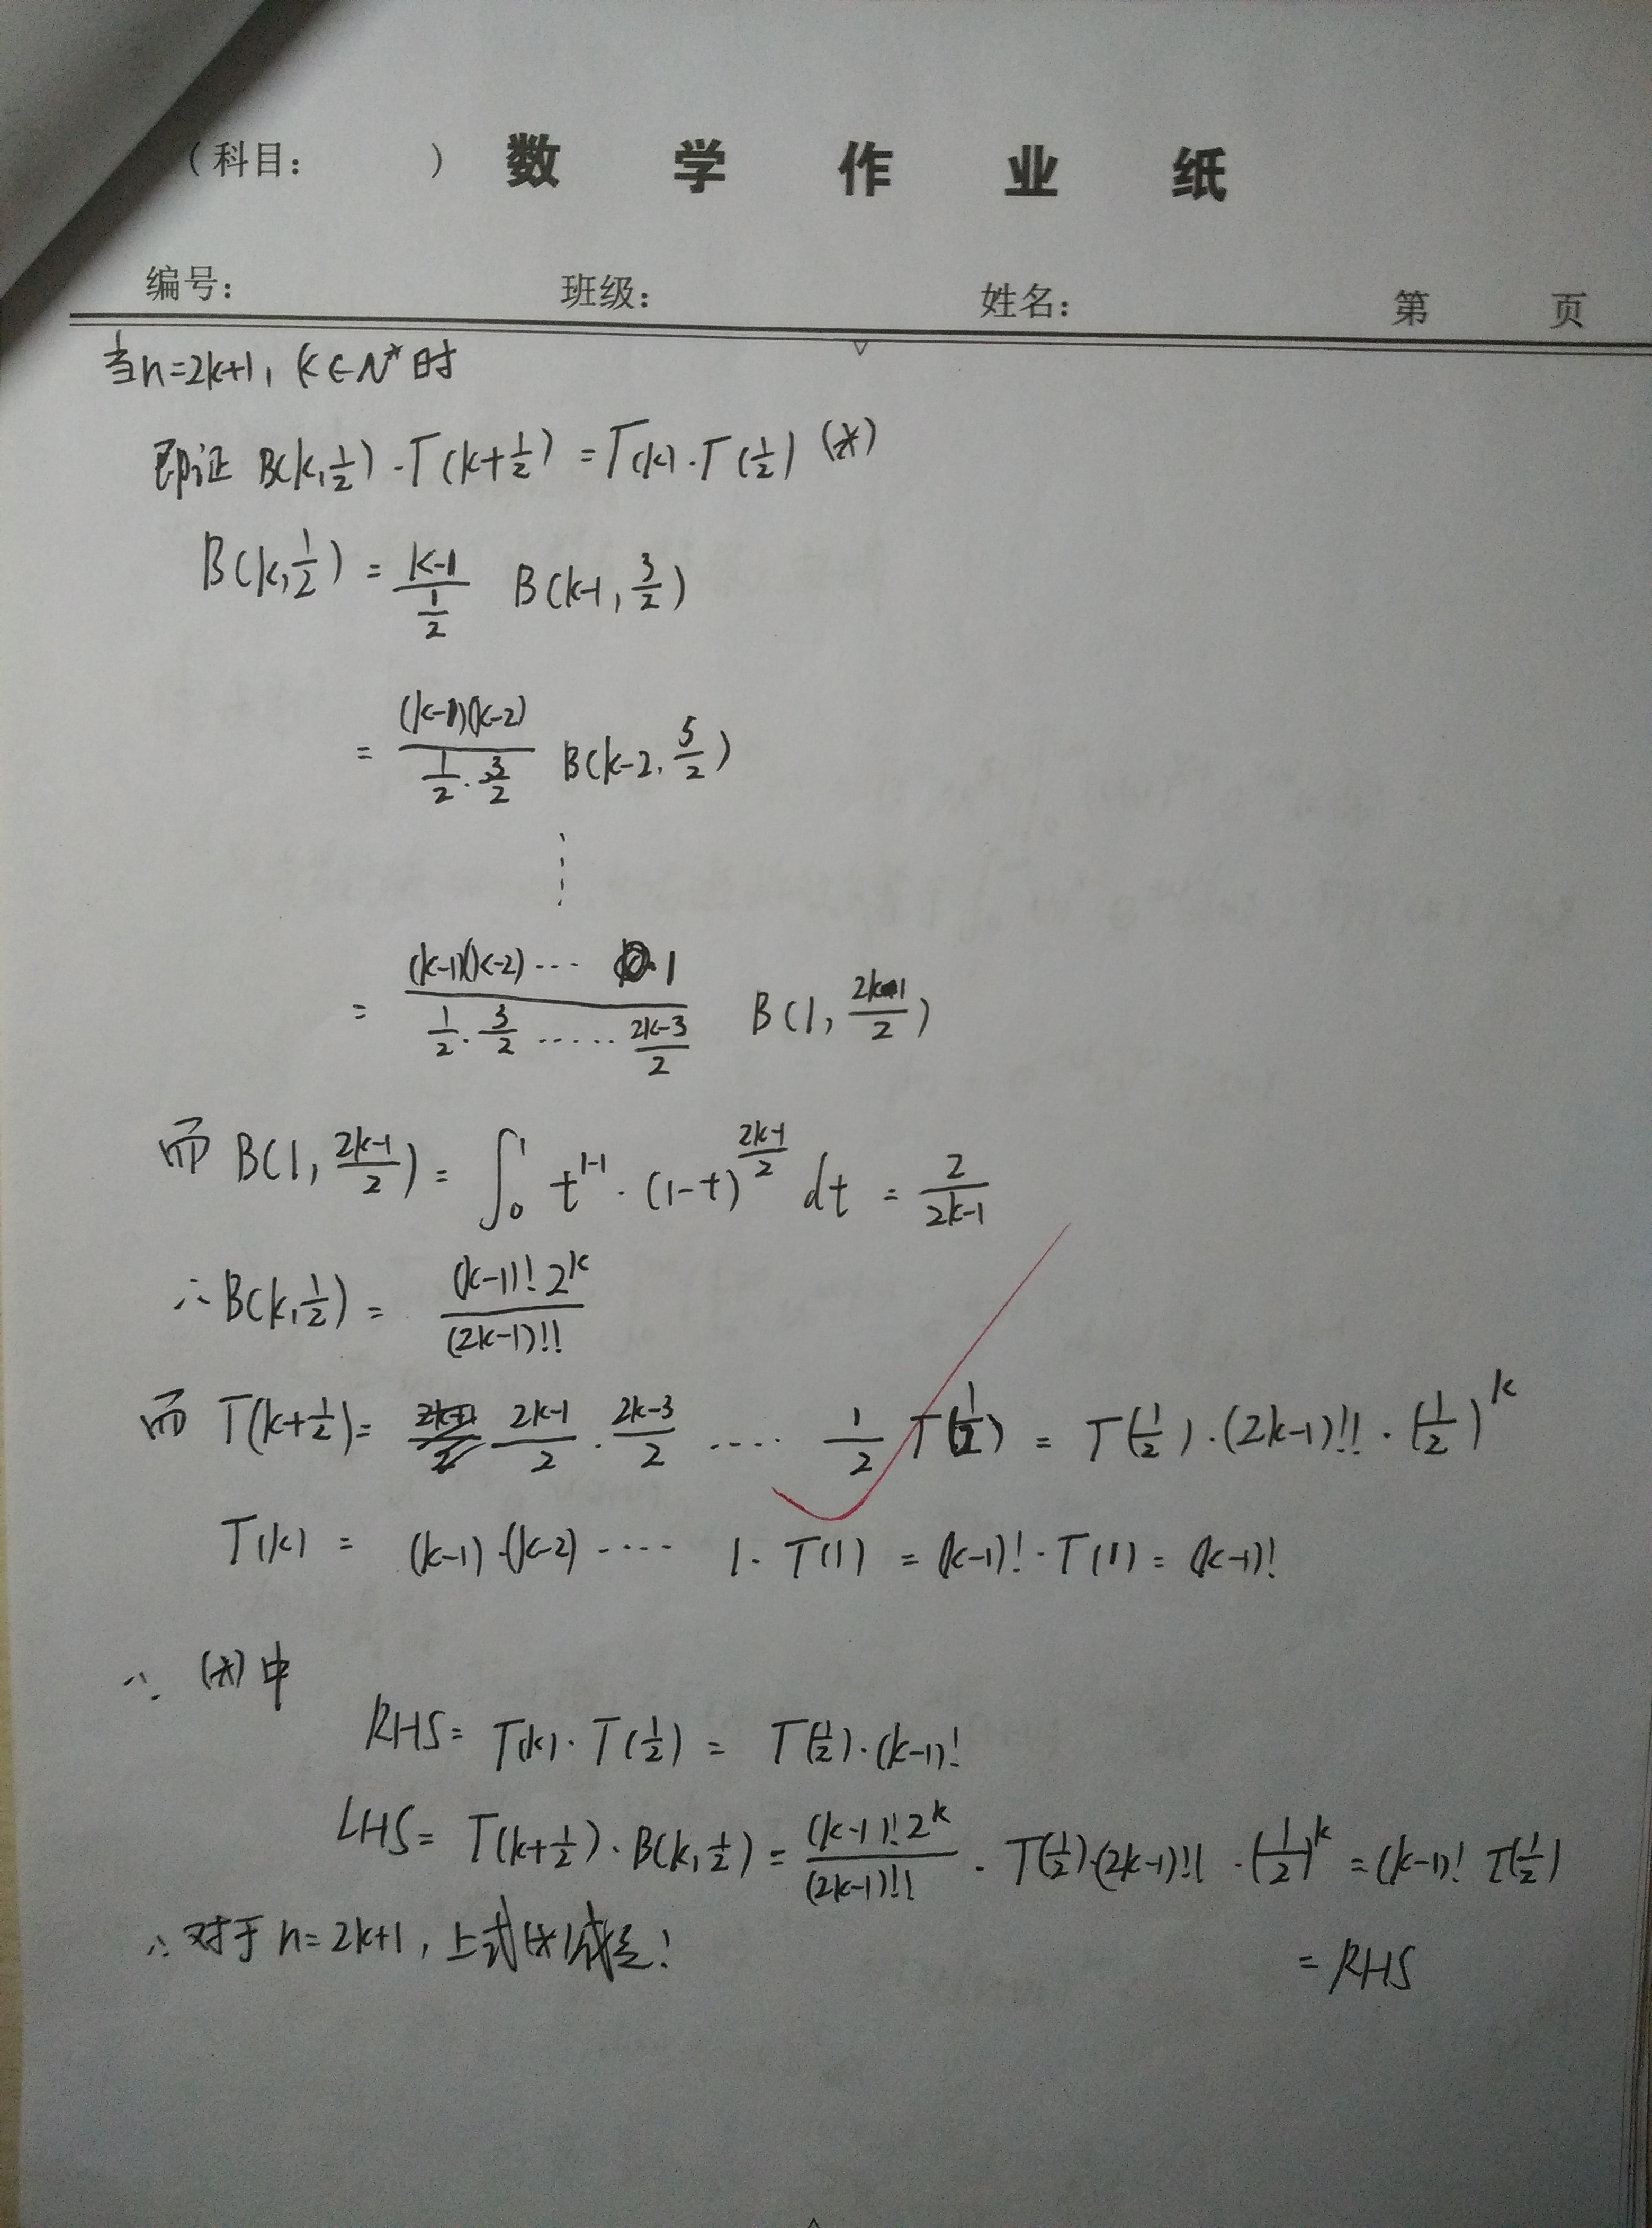 (科目: ) 数 学 作 业 纸
编号: 班级: 姓名: 第 页
当n=2k+1, k∈N* 时
即证 B(k,1/2)·Γ(k+1/2) = Γ(k)·Γ(1/2) (*)
B(k,1/2) = (k-1)/(1/2) B(k-1, 3/2)
= (k-1)(k-2)/(1/2·3/2) B(k-2, 5/2)
⋮
= (k-1)(k-2)···1/(1/2·3/2·····(2k-3)/2) B(1, (2k-1)/2)
而 B(1, (2k-1)/2) = ∫₀¹ t^(1-1)·(1-t)^((2k-1)/2) dt = 2/(2k-1)
∴ B(k,1/2) = (k-1)! 2^k/(2k-1)!!
而 Γ(k+1/2) = (2k-1)/2 · (2k-3)/2 ···· 1/2 Γ(1/2) = Γ(1/2)·(2k-1)!!·(1/2)^k
Γ(k) = (k-1)·(k-2)···· 1·Γ(1) = (k-1)!·Γ(1) = (k-1)!
∴ (*) 中
RHS = Γ(k)·Γ(1/2) = Γ(1/2)·(k-1)!
LHS = Γ(k+1/2)·B(k,1/2) = (k-1)! 2^k/(2k-1)!! · Γ(1/2)·(2k-1)!!·(1/2)^k = (k-1)! Γ(1/2)
= RHS
∴ 对于 n=2k+1, 上式(*)成立!